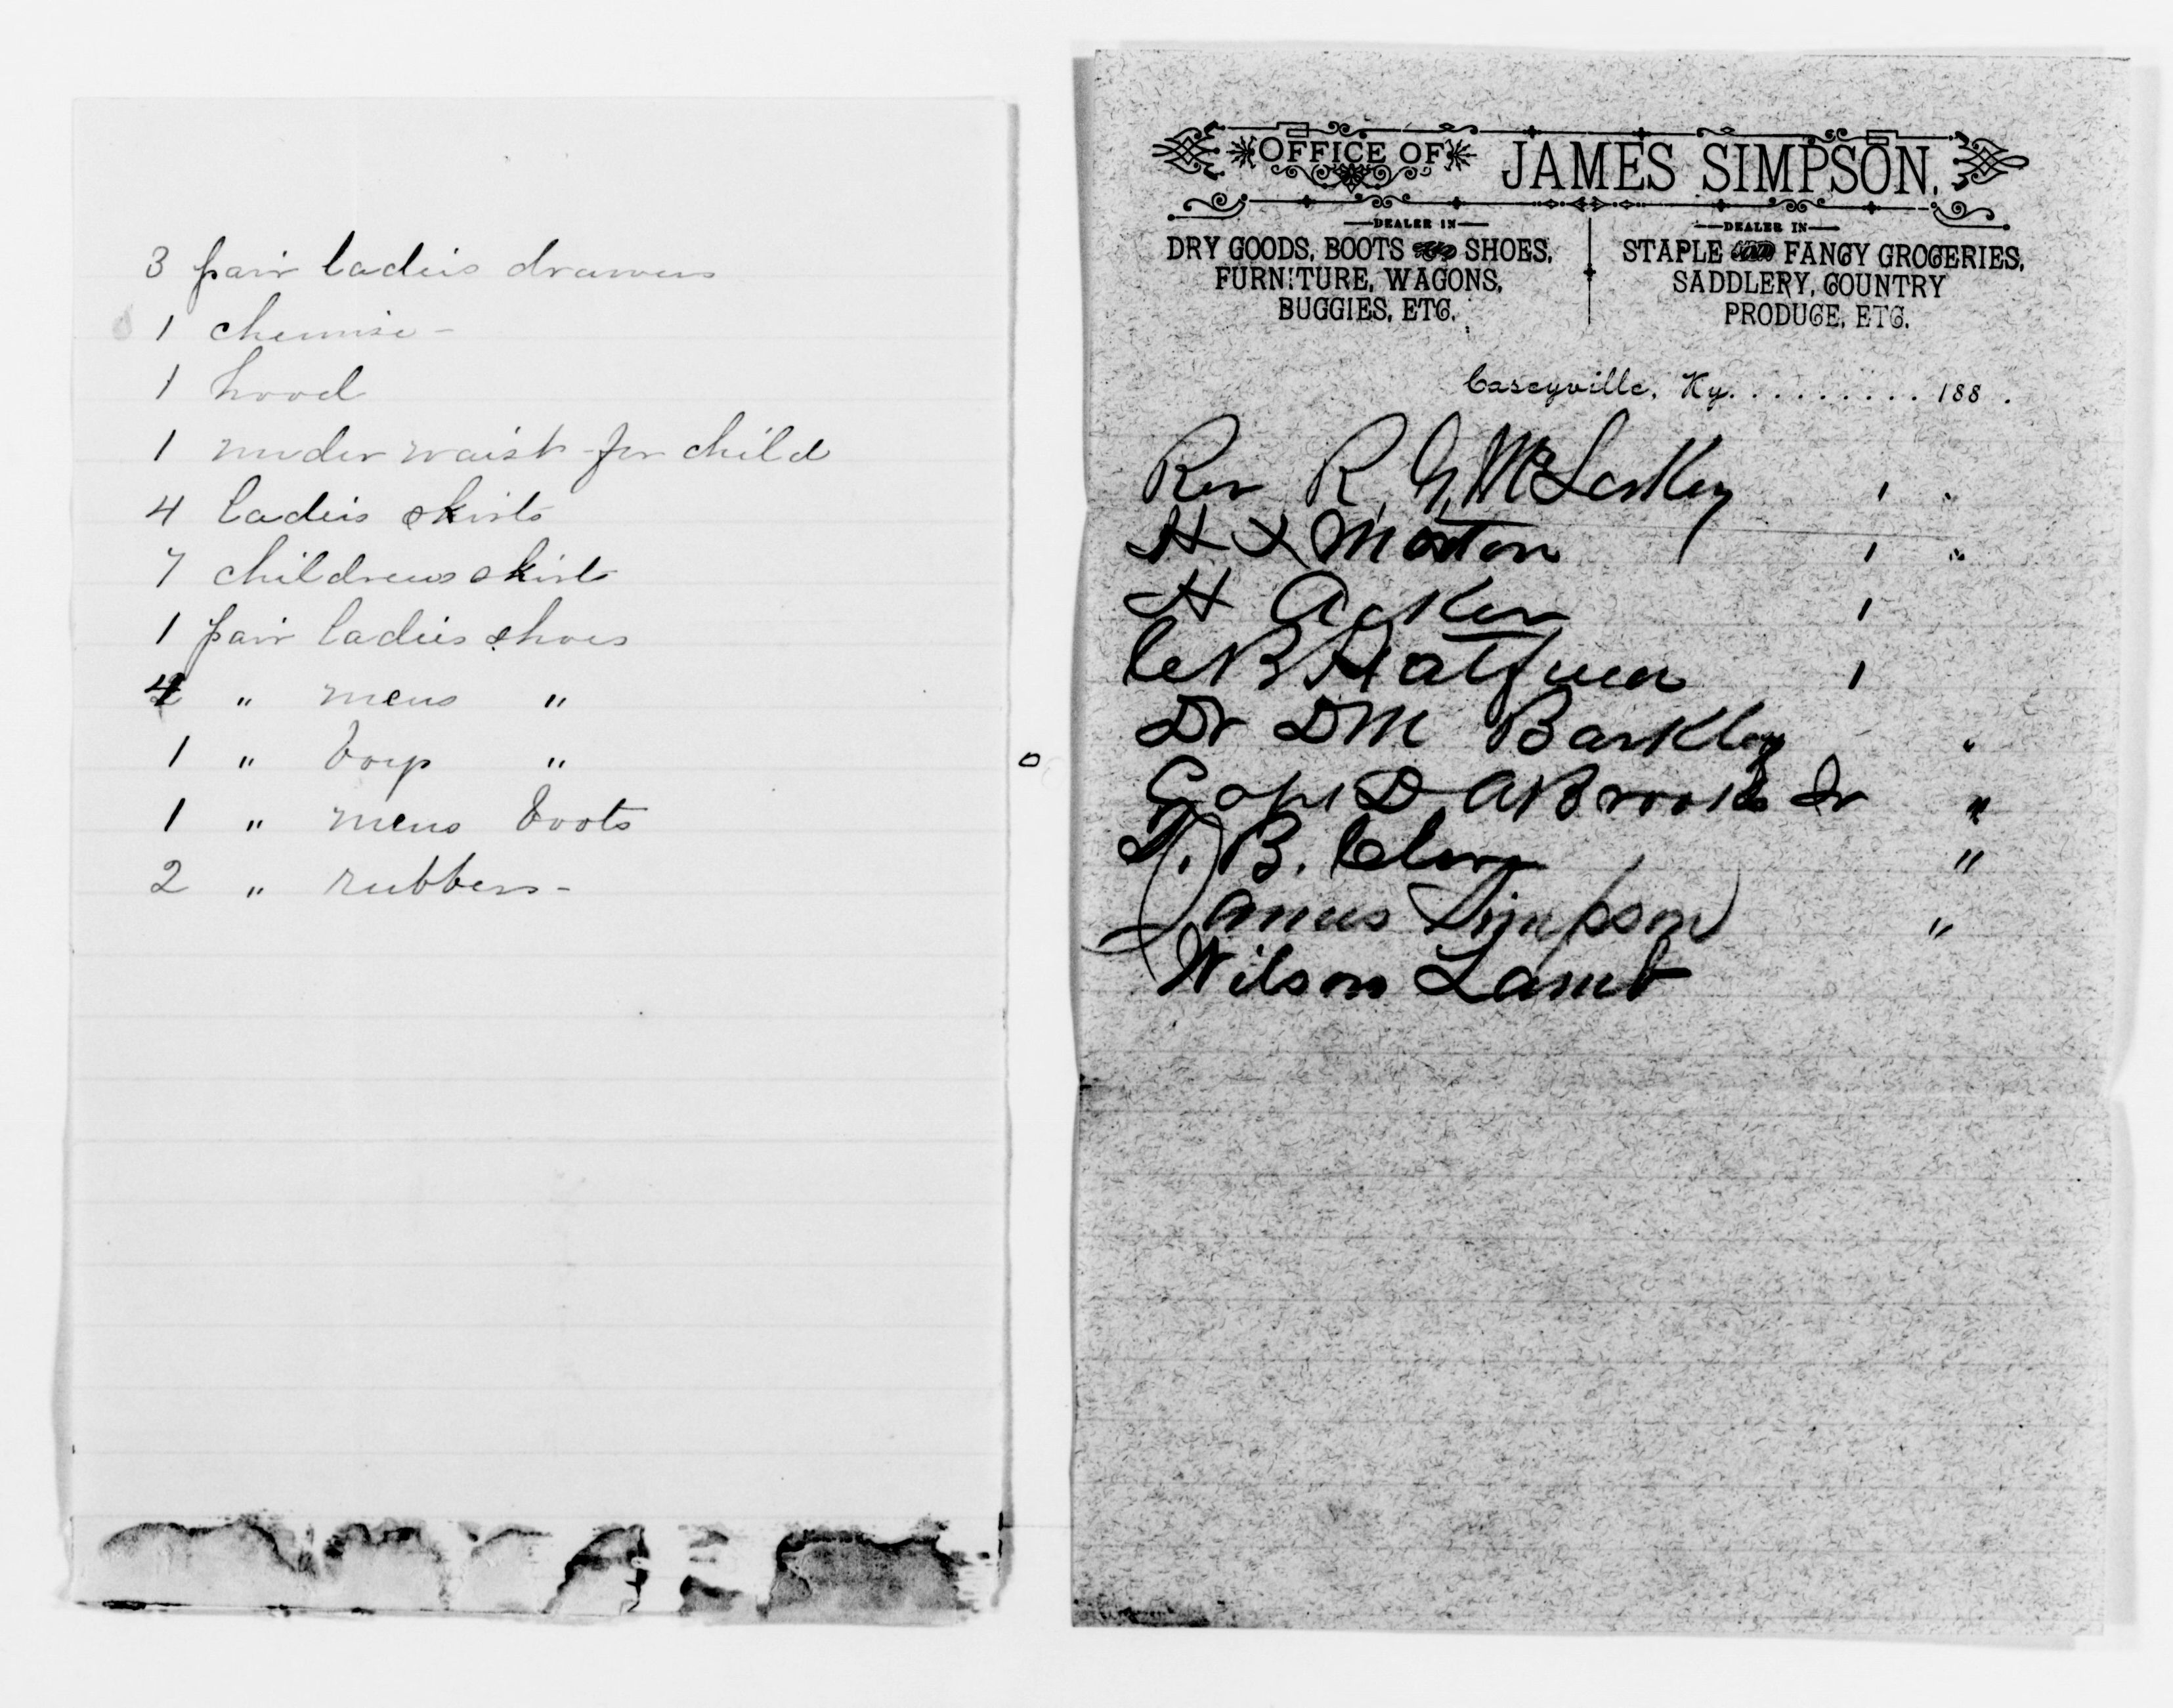 3 pair ladies drawers
1 chemise -
1 hood
1 under waist for child
4 ladies skirts
7 childrens skirts
1 pair ladies shoes
4 " mens "
1 " boys "
1 " mens boots
2 " rubbers -
OFFICE OF JAMES SIMPSON,
DEALER IN
DRY GOODS, BOOTS AND SHOES,
FURNITURE, WAGONS,
BUGGIES, ETC.
DEALER IN
STAPLE AND FANCY GROCERIES,
SADDLERY, COUNTRY
PRODUCE, ETC.
Caseyville, Ky. . . . . . . . . . 188 .
Rev R. 1 "
H Morton 1 "
H Acker 1
C B 1
Dr D M Barkley "
Capt D A Brooks Jr "
B. "
James Simpson "
Wilson Lamb